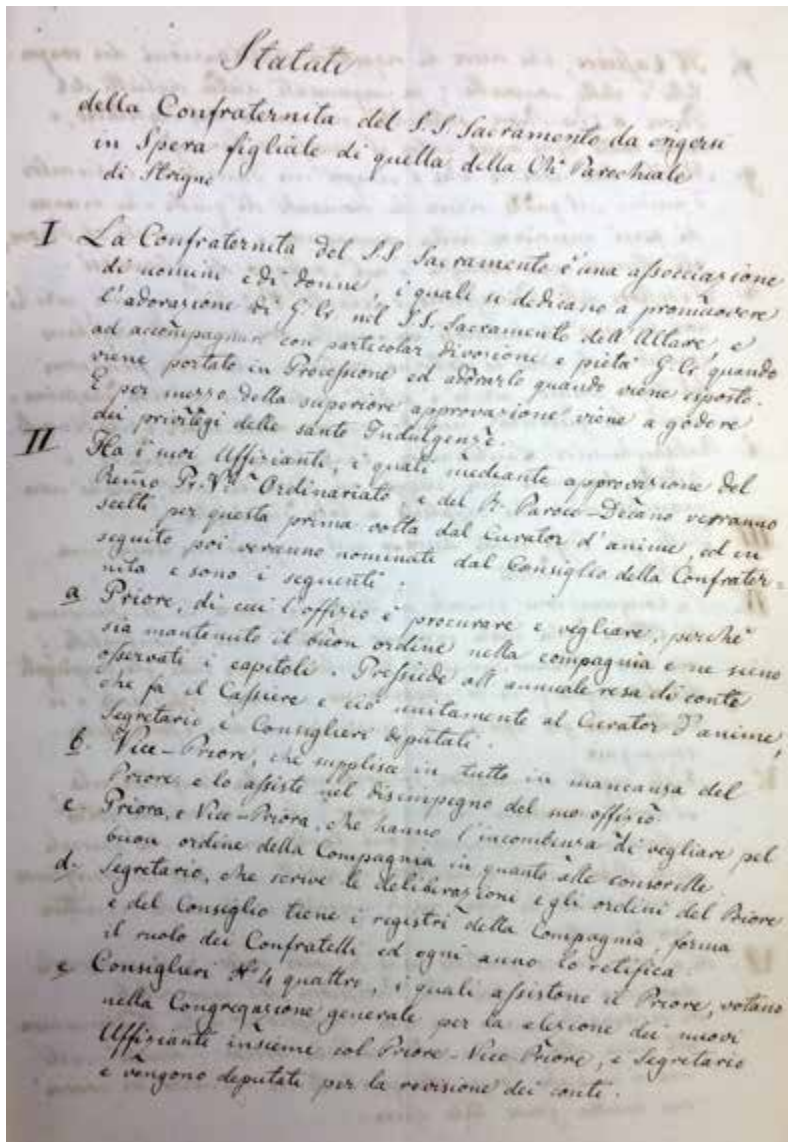 Statuti
della Confraternita del S.S Sacramento da erigersi
in Spera figliale di quella della Ch. Parochiale
di Strigno
I La Confraternita del S.S Sacramento è una associazione
di uomini e di donne, i quali si dedicano a promuovere
l'adorazione di G. Cr nel S.S. Sacramento dell'Altare, e
ad accompagnare con particolar divozione e pietà G. Cr quando
viene portato in Processione ed adorarlo quando viene esposto.
E per mezzo della superiore approvazione viene a godere
dei privilegi delle sante Indulgenze.
II Ha i suoi Uffizianti, i quali mediante approvazione del
Ordinariato e del Paroco-Decano verranno
scelti per questa prima volta dal Curator d'anime, ed in
seguito poi veranno nominati dal Consiglio della Confrater-
nita e sono i seguenti:
a Priore, di cui l'offizio è procurare e vegliare, perchè
sia mantenuto il buon ordine nella compagnia e ne sieno
osservati i capitoli. Pressiede all'annuale resa di conto
che fa il Cassiere e ciò unitamente al Curator d'anime,
Segretario i Consiglieri deputati.
b. Vice-Priore, che supplisce in tutto in mancanza del
Priore, e lo assiste nel disimpegno del suo offizio.
c Priora, e Vice-Priora, che hanno l'incombenza di vegliare pel
buon ordine della Compagnia in quanto alle consorelle.
d. Segretario, che scrive le deliberazioni e gli ordini del Priore
e del Consiglio tiene i registri della Compagnia, forma
il ruolo dei Confratelli ed ogni anno lo retifica.
e Consiglieri N° 4 quattro, i quali assistono il Priore, votano
nella Congregazione generale per la elezione dei nuovi
Uffizianti insieme col Priore-Vice Priore, e Segretario
e vengono deputati per la revisione dei conti.